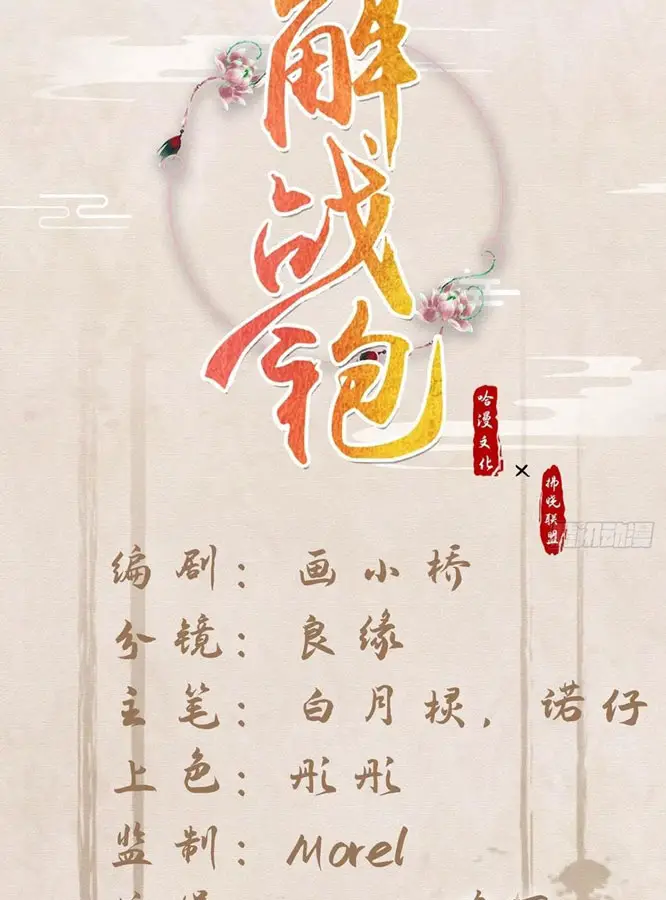 解
战
袍
哈漫文化
×
拂晓联盟
编剧：画小桥
分镜：良缘
主笔：白月棂，诺仔
上色：彤彤
监制：Morel